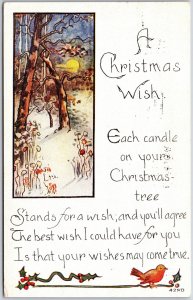 A
Christmas
Wish.
Each candle
on your
Christmas-
tree
Stands for a wish, and you'll agree
The best wish I could have for you
Is that your wishes may come true.